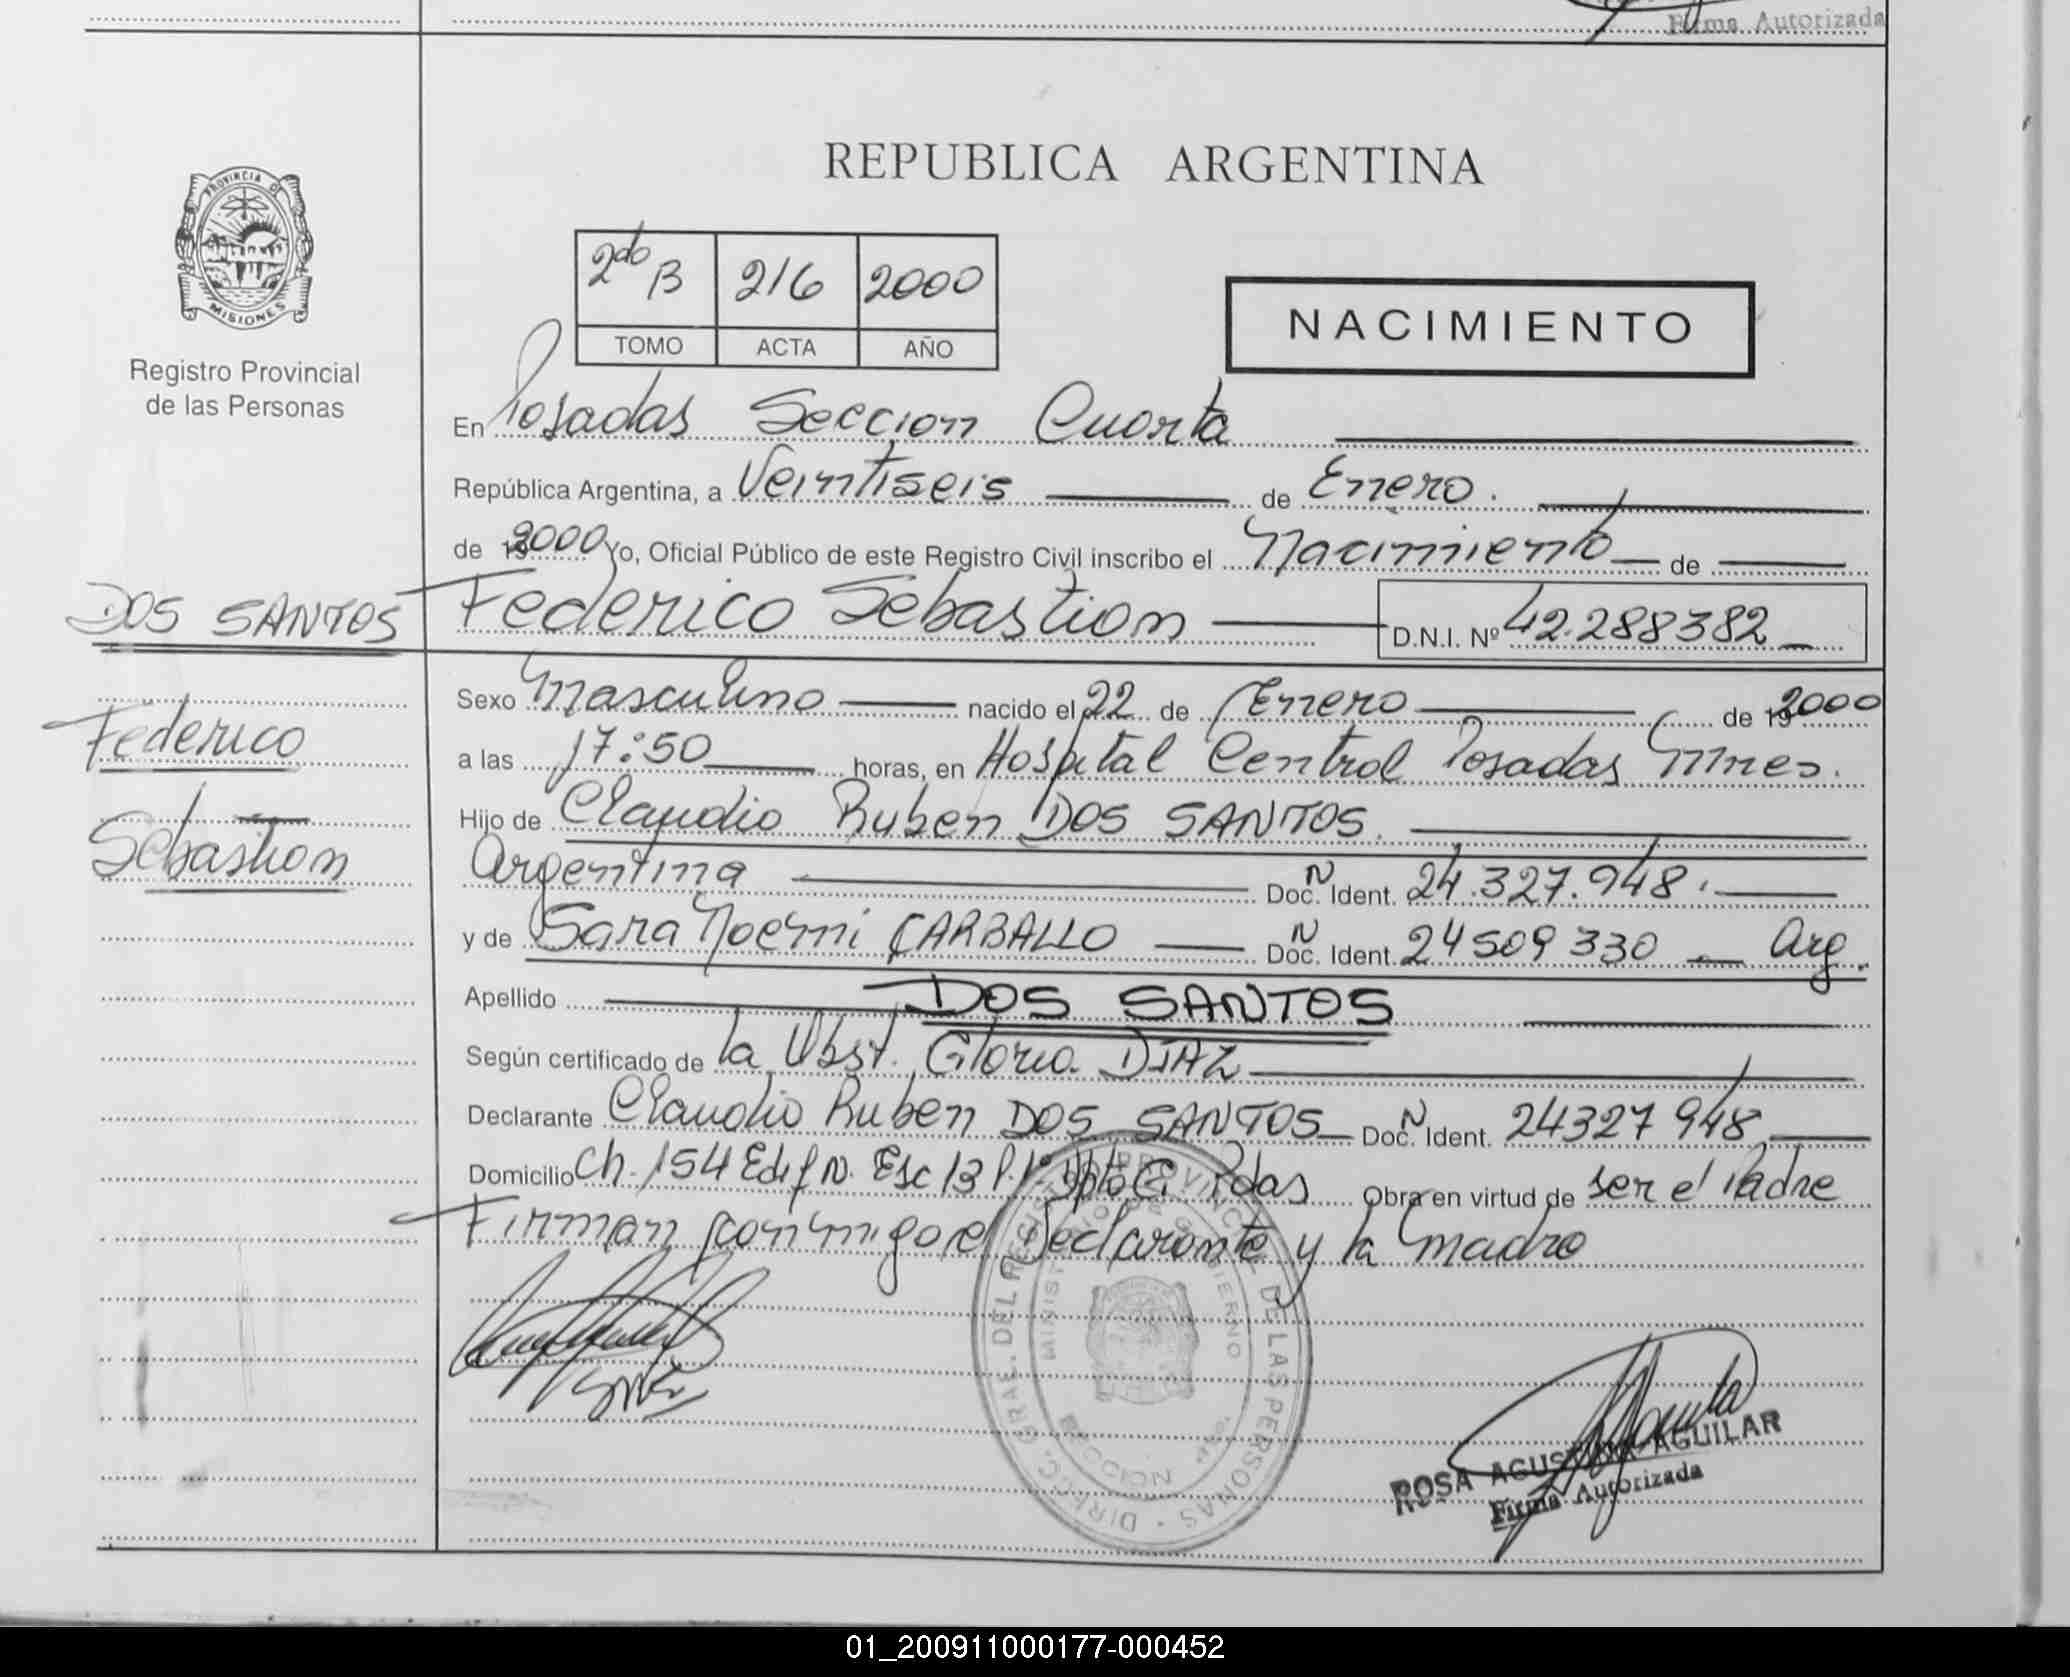 Firma Autorizada
REPUBLICA ARGENTINA
PROVINCIA DE
MISIONES
Registro Provincial
de las Personas
2do B 216 2000
TOMO ACTA AÑO
NACIMIENTO
En Posadas Seccion Cuarta
República Argentina, a Veintiseis de Enero.
de 2000 Yo, Oficial Público de este Registro Civil inscribo el Nacimiento de
DOS SANTOS Federico Sebastian D.N.I. Nº 42.288382
Federico
Sebastian
Sexo Masculino nacido el 22 de Enero de 2000
a las 17:50 horas, en Hospital Central Posadas Mnes.
Hijo de Claudio Ruben DOS SANTOS.
Argentina Doc. N Ident. 24.327.948.
y de Sara Noemi CARBALLO Doc. N Ident. 24509330 Arg.
Apellido DOS SANTOS
Según certificado de la Obst. Gloria DIAZ
Declarante Claudio Ruben DOS SANTOS Doc. N Ident. 24327948
Domicilio Ch. 154 Edif N. Esc 13 P. 1º Dpto C. Pdas Obra en virtud de ser el Padre
Firman conmigo el Declarante y la madre
DIRECC. GRAL. DEL REGISTRO PROVINCIAL DE LAS PERSONAS
MINISTERIO DE GOBIERNO
ROSA AGUSTINA AGUILAR
Firma Autorizada
01_200911000177-000452